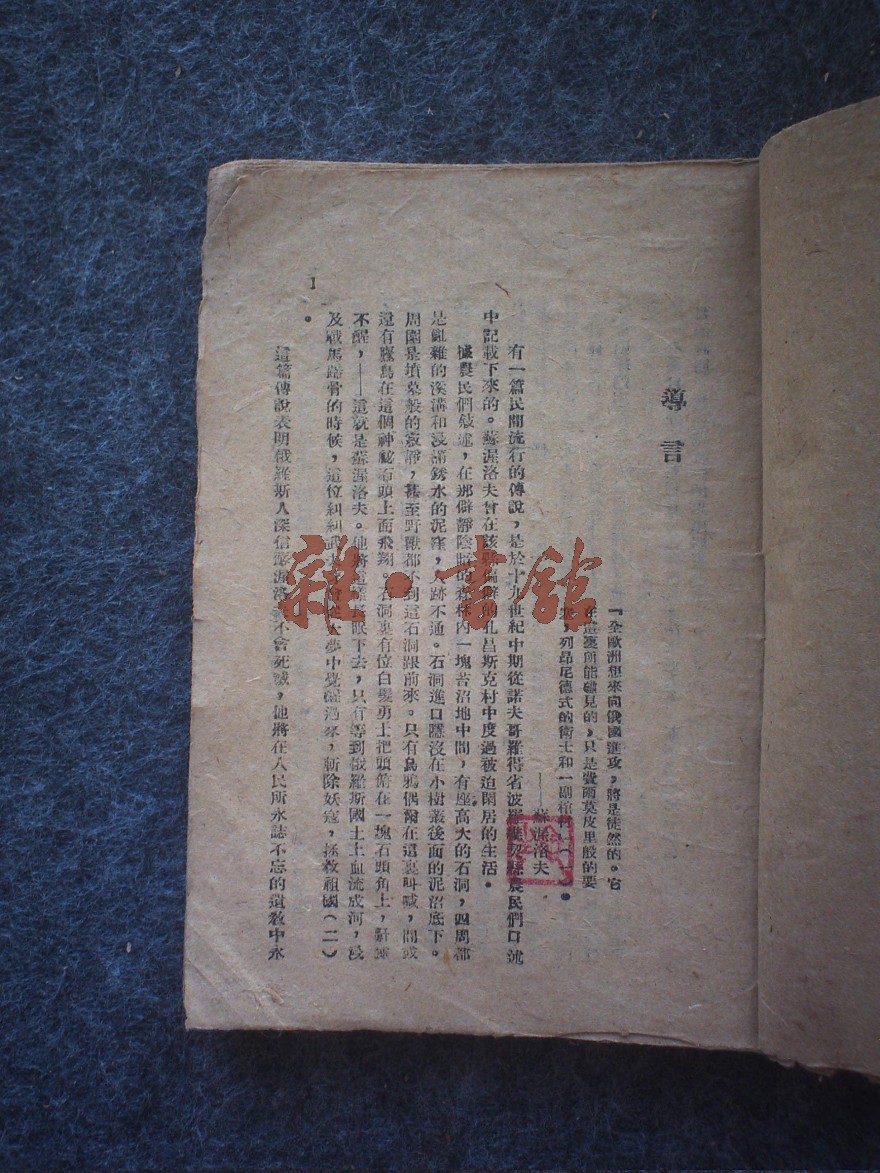 導言
『全歐洲想來向俄國進攻，將是徒然的。它
在這裏所能碰見的，只是費爾莫皮里般的要
塞，列昂尼德式的衛士和一副棺材』（一）。
——蘇渥洛夫
有一篇民間流行的傳說，是於十九世紀中期從諾夫哥羅得省波羅維契縣農民們口述
中記載下來的。蘇渥洛夫曾在該縣偏僻的孔昌斯克村中度過被迫閑居的生活。
據農民們敍述，在那僻靜陰暗的森林內一塊苔沼地中間，有座高大的石洞，四周都
是亂雜的溪溝和浸滿銹水的泥窪，人跡不通。石洞進口隱沒在小樹叢後面的泥沼底下。
周圍是墳墓般的寂靜，甚至野獸都不到這石洞跟前來。只有烏鴉偶爾在這裏叫喊，間或
還有鷹鳥在這個神祕石頭上面飛翔。石洞裏有位白髮勇士把頭俯在一塊石頭角上，酣睡
不醒，——這就是蘇渥洛夫。他將這樣長眠下去，只有等到俄羅斯國土上血流成河，浸
及戰馬踝骨的時候，這位糾糾武夫會從大夢中覺醒過來，斬除妖寇，拯救祖國（二）
。
這篇傳說表明俄羅斯人深信蘇渥洛夫不會死滅，他將在人民所永誌不忘的遺教中永
1
雜·書館